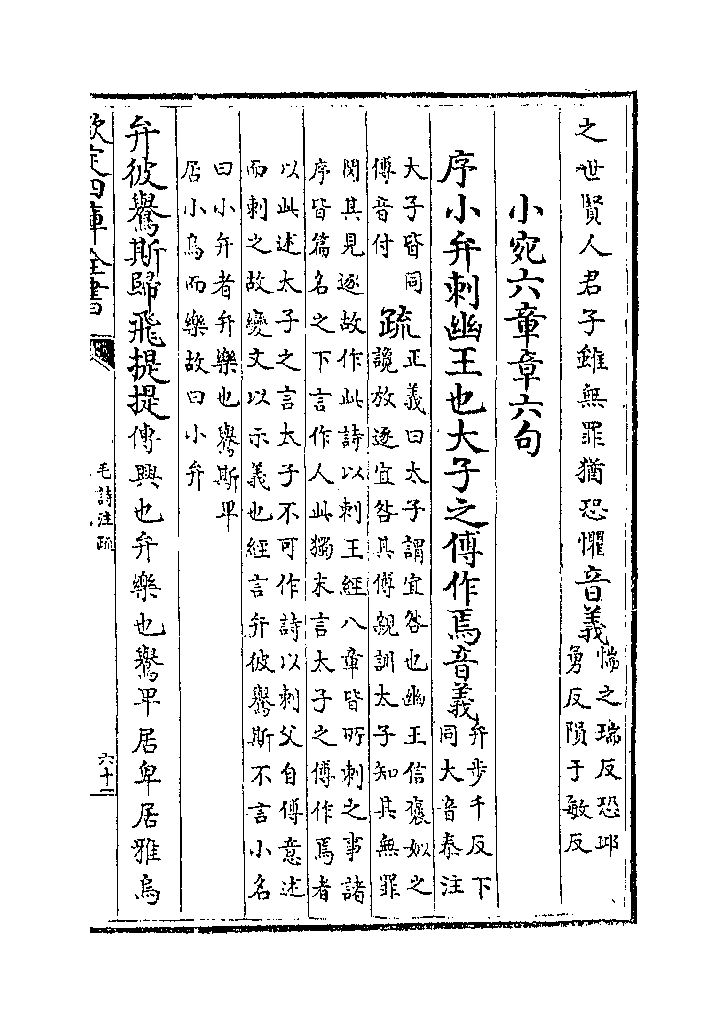 之世賢人君子雖無罪猶恐懼音義
惴之瑞反恐邱
勇反隕于敏反
小宛六章章六句
序小弁刺幽王也大子之傅作焉音義
弁步千反下
同大音泰注
大子皆同
傅音付
疏
正義曰太子謂宜咎也幽王信褒姒之
讒放逐宜咎其傅親訓太子知其無罪
閔其見逐故作此詩以刺王經八章皆所刺之事諸
序皆篇名之下言作人此獨末言太子之傅作焉者
以此述太子之言太子不可作詩以刺父自傅意述
而刺之故變文以示義也經言弁彼鸒斯不言小名
曰小弁者弁樂也鸒斯卑
居小鳥而樂故曰小弁
弁彼鸒斯歸飛提提傳興也弁樂也鸒卑居卑居雅烏
欽定四庫全書
毛詩注疏
六十二